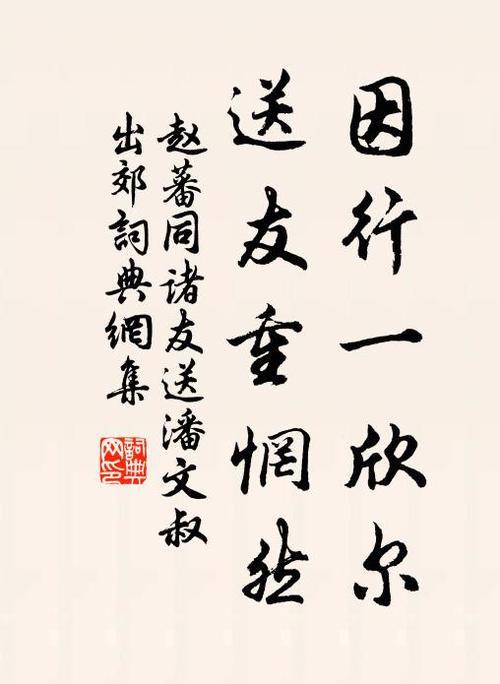 因行一欣尔
送友重惘然
赵蕃同诸友送潘文叔
出郊詞典網集
詞典网印